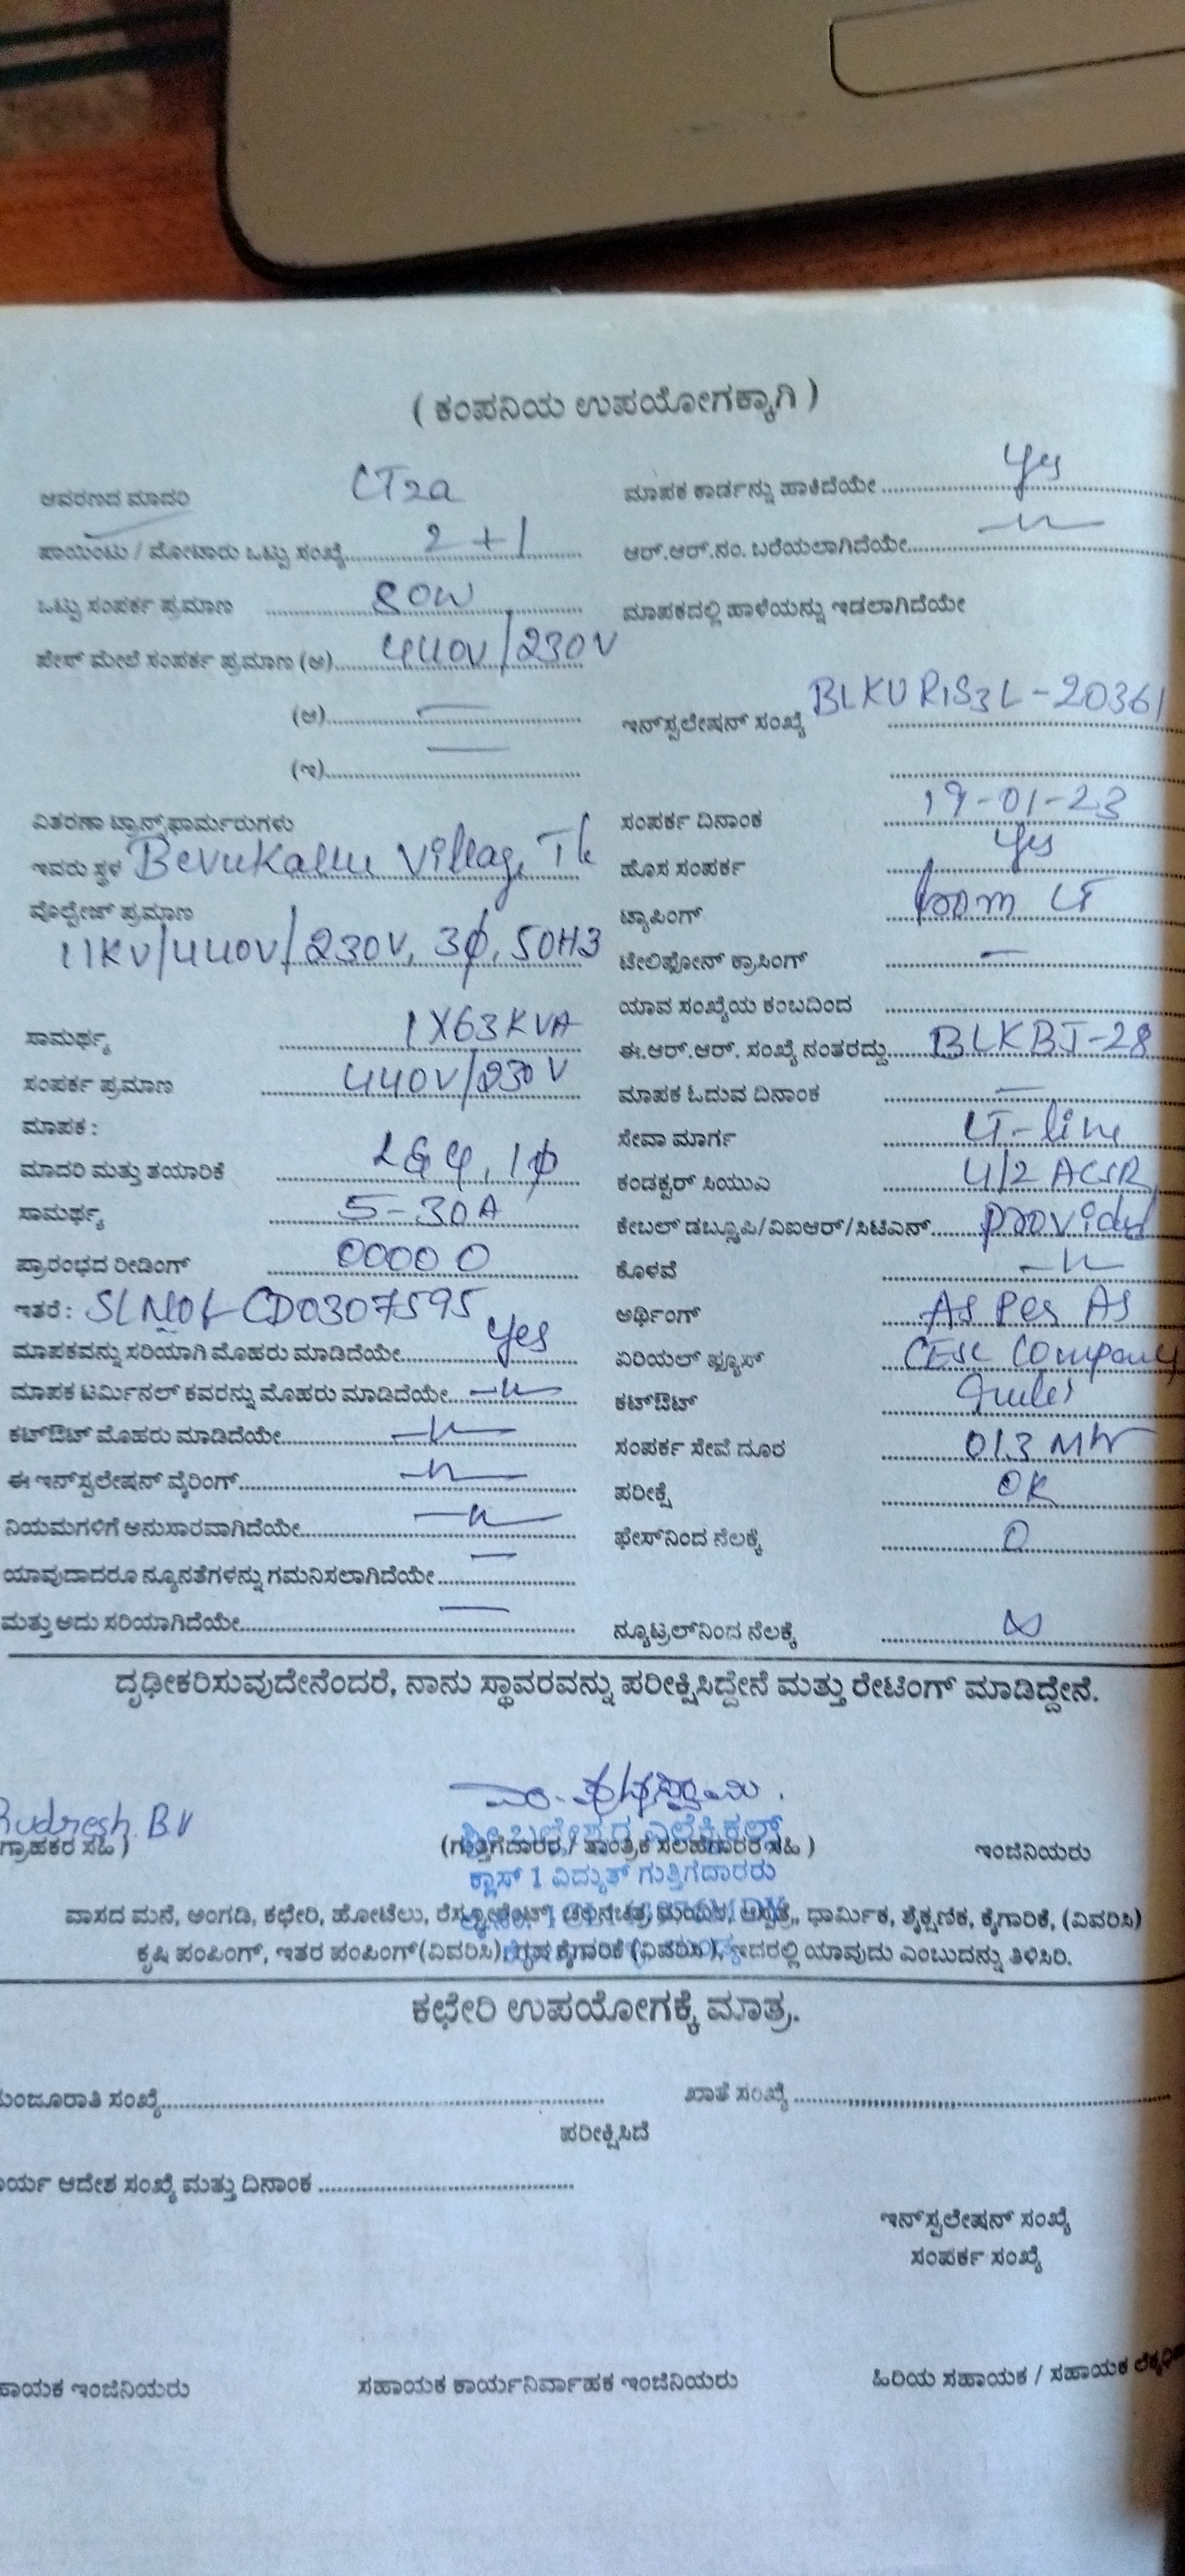 ( ಕಂಪನಿಯ ಉಪಯೋಗಕ್ಕಾಗಿ )
ಆವರಣದ ಮಾದರಿ CT2a
ಪಾಯಿಂಟು / ಮೋಟಾರು ಒಟ್ಟು ಸಂಖ್ಯೆ 2 + 1
ಒಟ್ಟು ಸಂಪರ್ಕ ಪ್ರಮಾಣ 80W
ಪೇಸ್ ಮೇಲೆ ಸಂಪರ್ಕ ಪ್ರಮಾಣ (ಅ) 440V/230V
(ಆ) —
(ಇ) —
ವಿತರಣಾ ಟ್ರಾನ್ಸ್‌ಫಾರ್ಮರುಗಳು
ಇವರು ಸ್ಥಳ Bevukallu Village, Tk
ವೋಲ್ಟೇಜ್ ಪ್ರಮಾಣ
11KV/440V/230V, 3ϕ, 50HZ
ಸಾಮರ್ಥ್ಯ 1X63KVA
ಸಂಪರ್ಕ ಪ್ರಮಾಣ 440V/230V
ಮಾಪಕ :
ಮಾದರಿ ಮತ್ತು ತಯಾರಿಕೆ L&G, 1ϕ
ಸಾಮರ್ಥ್ಯ 5-30A
ಪ್ರಾರಂಭದ ರೀಡಿಂಗ್ 00000
ಇತರೆ : SLNO CD0307595
ಮಾಪಕವನ್ನು ಸರಿಯಾಗಿ ಮೊಹರು ಮಾಡಿದೆಯೇ Yes
ಮಾಪಕ ಟರ್ಮಿನಲ್ ಕವರನ್ನು ಮೊಹರು ಮಾಡಿದೆಯೇ —"—
ಕಟ್‌ಔಟ್ ಮೊಹರು ಮಾಡಿದೆಯೇ —"—
ಈ ಇನ್‌ಸ್ಟಲೇಷನ್ ವೈರಿಂಗ್ —"—
ನಿಯಮಗಳಿಗೆ ಅನುಸಾರವಾಗಿದೆಯೇ —"—
ಯಾವುದಾದರೂ ನ್ಯೂನತೆಗಳನ್ನು ಗಮನಿಸಲಾಗಿದೆಯೇ —
ಮತ್ತು ಅದು ಸರಿಯಾಗಿದೆಯೇ —
ಮಾಪಕ ಕಾರ್ಡನ್ನು ಹಾಕಿದೆಯೇ Yes
ಆರ್.ಆರ್.ನಂ. ಬರೆಯಲಾಗಿದೆಯೇ —"—
ಮಾಪಕದಲ್ಲಿ ಹಾಳೆಯನ್ನು ಇಡಲಾಗಿದೆಯೇ
ಇನ್‌ಸ್ಟಲೇಷನ್ ಸಂಖ್ಯೆ BLKURIS3L-20361
ಸಂಪರ್ಕ ದಿನಾಂಕ 19-01-23
ಹೊಸ ಸಂಪರ್ಕ Yes
ಟ್ಯಾಪಿಂಗ್ from LT
ಟೇಲಿಫೋನ್ ಕ್ರಾಸಿಂಗ್ —
ಯಾವ ಸಂಖ್ಯೆಯ ಕಂಬದಿಂದ
ಈ.ಆರ್.ಆರ್. ಸಂಖ್ಯೆ ನಂತರದ್ದು BLKBJ-28
ಮಾಪಕ ಓದುವ ದಿನಾಂಕ —
ಸೇವಾ ಮಾರ್ಗ LT-line
ಕಂಡಕ್ಟರ್ ಸಿಯುಎ 4/2 ACSR
ಕೇಬಲ್ ಡಬ್ಲ್ಯೂಪಿ/ವಿಐಆರ್/ಸಿಟಿಎನ್ provided
ಕೊಳವೆ —"—
ಅರ್ಥಿಂಗ್ As Per As
ಏರಿಯಲ್ ಫ್ಯೂಸ್ CESC Company
ಕಟ್‌ಔಟ್
ಸಂಪರ್ಕ ಸೇವೆ ದೂರ 013 Mtr
ಪರೀಕ್ಷೆ OK
ಫೇಸ್‌ನಿಂದ ನೆಲಕ್ಕೆ 0
ನ್ಯೂಟ್ರಲ್‌ನಿಂದ ನೆಲಕ್ಕೆ ∞
ದೃಢೀಕರಿಸುವುದೇನೆಂದರೆ, ನಾನು ಸ್ಥಾವರವನ್ನು ಪರೀಕ್ಷಿಸಿದ್ದೇನೆ ಮತ್ತು ರೇಟಿಂಗ್ ಮಾಡಿದ್ದೇನೆ.
Rudresh B.V
ಗ್ರಾಹಕರ ಸಹಿ )
(ಗುತ್ತಿಗೆದಾರರ / ತಾಂತ್ರಿಕ ಸಲಹೆಗಾರರ ಸಹಿ )
ಇಂಜಿನಿಯರು
ಕ್ಲಾಸ್ 1 ವಿದ್ಯುತ್ ಗುತ್ತಿಗೆದಾರರು
ವಾಸದ ಮನೆ, ಅಂಗಡಿ, ಕಛೇರಿ, ಹೋಟೆಲು, ರೆಸ್ಟೋರೆಂಟ್, ಚಲನಚಿತ್ರ ಮಂದಿರ, ಆಸ್ಪತ್ರೆ, ಧಾರ್ಮಿಕ, ಶೈಕ್ಷಣಿಕ, ಕೈಗಾರಿಕೆ, (ವಿವರಿಸಿ)
ಕೃಷಿ ಪಂಪಿಂಗ್, ಇತರ ಪಂಪಿಂಗ್(ವಿವರಿಸಿ) ಗೃಹ ಕೈಗಾರಿಕೆ (ವಿವರಿಸಿ), ಇದರಲ್ಲಿ ಯಾವುದು ಎಂಬುದನ್ನು ತಿಳಿಸಿರಿ.
ಕಛೇರಿ ಉಪಯೋಗಕ್ಕೆ ಮಾತ್ರ.
ಮಂಜೂರಾತಿ ಸಂಖ್ಯೆ
ಖಾತೆ ಸಂಖ್ಯೆ
ಪರೀಕ್ಷಿಸಿದೆ
ಕಾರ್ಯ ಆದೇಶ ಸಂಖ್ಯೆ ಮತ್ತು ದಿನಾಂಕ
ಇನ್‌ಸ್ಟಲೇಷನ್ ಸಂಖ್ಯೆ
ಸಂಪರ್ಕ ಸಂಖ್ಯೆ
ಸಹಾಯಕ ಇಂಜಿನಿಯರು
ಸಹಾಯಕ ಕಾರ್ಯನಿರ್ವಾಹಕ ಇಂಜಿನಿಯರು
ಹಿರಿಯ ಸಹಾಯಕ / ಸಹಾಯಕ